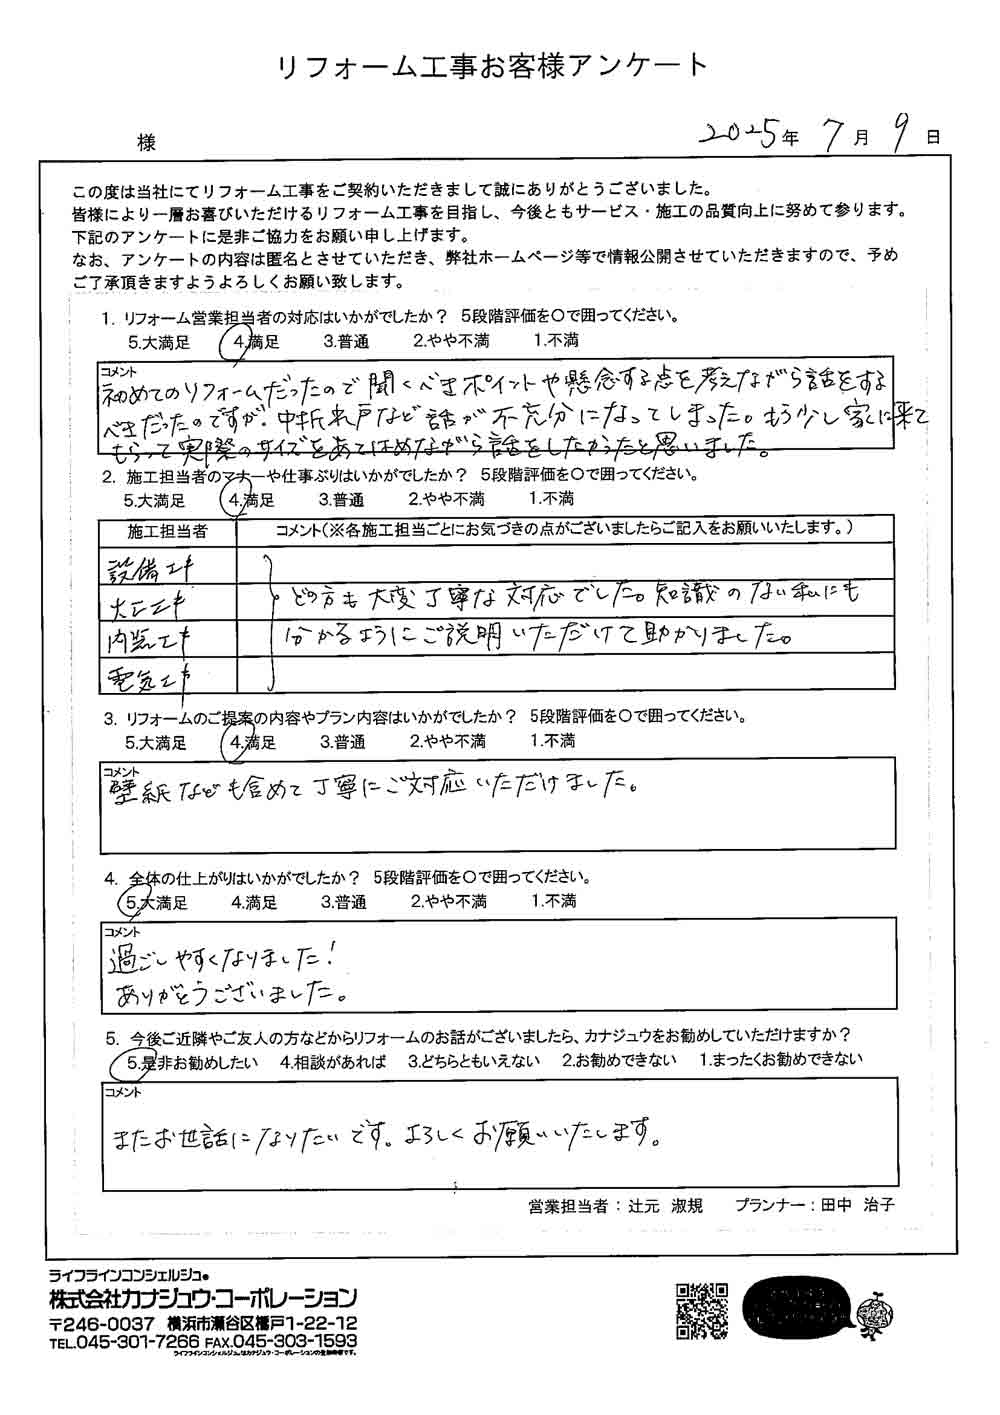 リフォーム工事お客様アンケート
様
2025年 7月 9日
この度は当社にてリフォーム工事をご契約いただきまして誠にありがとうございました。
皆様により一層お喜びいただけるリフォーム工事を目指し、今後ともサービス・施工の品質向上に努めて参ります。
下記のアンケートに是非ご協力をお願い申し上げます。
なお、アンケートの内容は匿名とさせていただき、弊社ホームページ等で情報公開させていただきますので、予め
ご了承頂きますようよろしくお願い致します。
1. リフォーム営業担当者の対応はいかがでしたか? 5段階評価を○で囲ってください。
5.大満足 4.満足 3.普通 2.やや不満 1.不満
コメント
初めてのリフォームだったので聞くべきポイントや懸念する点を考えながら話をする
べきだったのですが、中折れ戸など話が不充分になってしまった。もう少し家に来て
もらって実際のサイズをあてはめながら話をしたかったと思いました。
2. 施工担当者のマナーや仕事ぶりはいかがでしたか? 5段階評価を○で囲ってください。
5.大満足 4.満足 3.普通 2.やや不満 1.不満
施工担当者 コメント(※各施工担当ごとにお気づきの点がございましたらご記入をお願いいたします。)
設備工事
大工工事 どの方も大変丁寧な対応でした。知識のない私にも
内装工事 分かるようにご説明いただけて助かりました。
電気工事
3. リフォームのご提案の内容やプラン内容はいかがでしたか? 5段階評価を○で囲ってください。
5.大満足 4.満足 3.普通 2.やや不満 1.不満
コメント
壁紙なども含めて丁寧にご対応いただけました。
4. 全体の仕上がりはいかがでしたか? 5段階評価を○で囲ってください。
5.大満足 4.満足 3.普通 2.やや不満 1.不満
コメント
過ごしやすくなりました!
ありがとうございました。
5. 今後ご近隣やご友人の方などからリフォームのお話がございましたら、カナジュウをお勧めしていただけますか?
5.是非お勧めしたい 4.相談があれば 3.どちらともいえない 2.お勧めできない 1.まったくお勧めできない
コメント
またお世話になりたいです。よろしくお願いいたします。
営業担当者:辻元 淑規 プランナー:田中 治子
ライフラインコンシェルジュ
株式会社カナジュウ・コーポレーション
〒246-0037 横浜市瀬谷区橋戸1-22-12
TEL.045-301-7266 FAX.045-303-1593
ライフラインコンシェルジュはカナジュウ・コーポレーションの登録商標です。